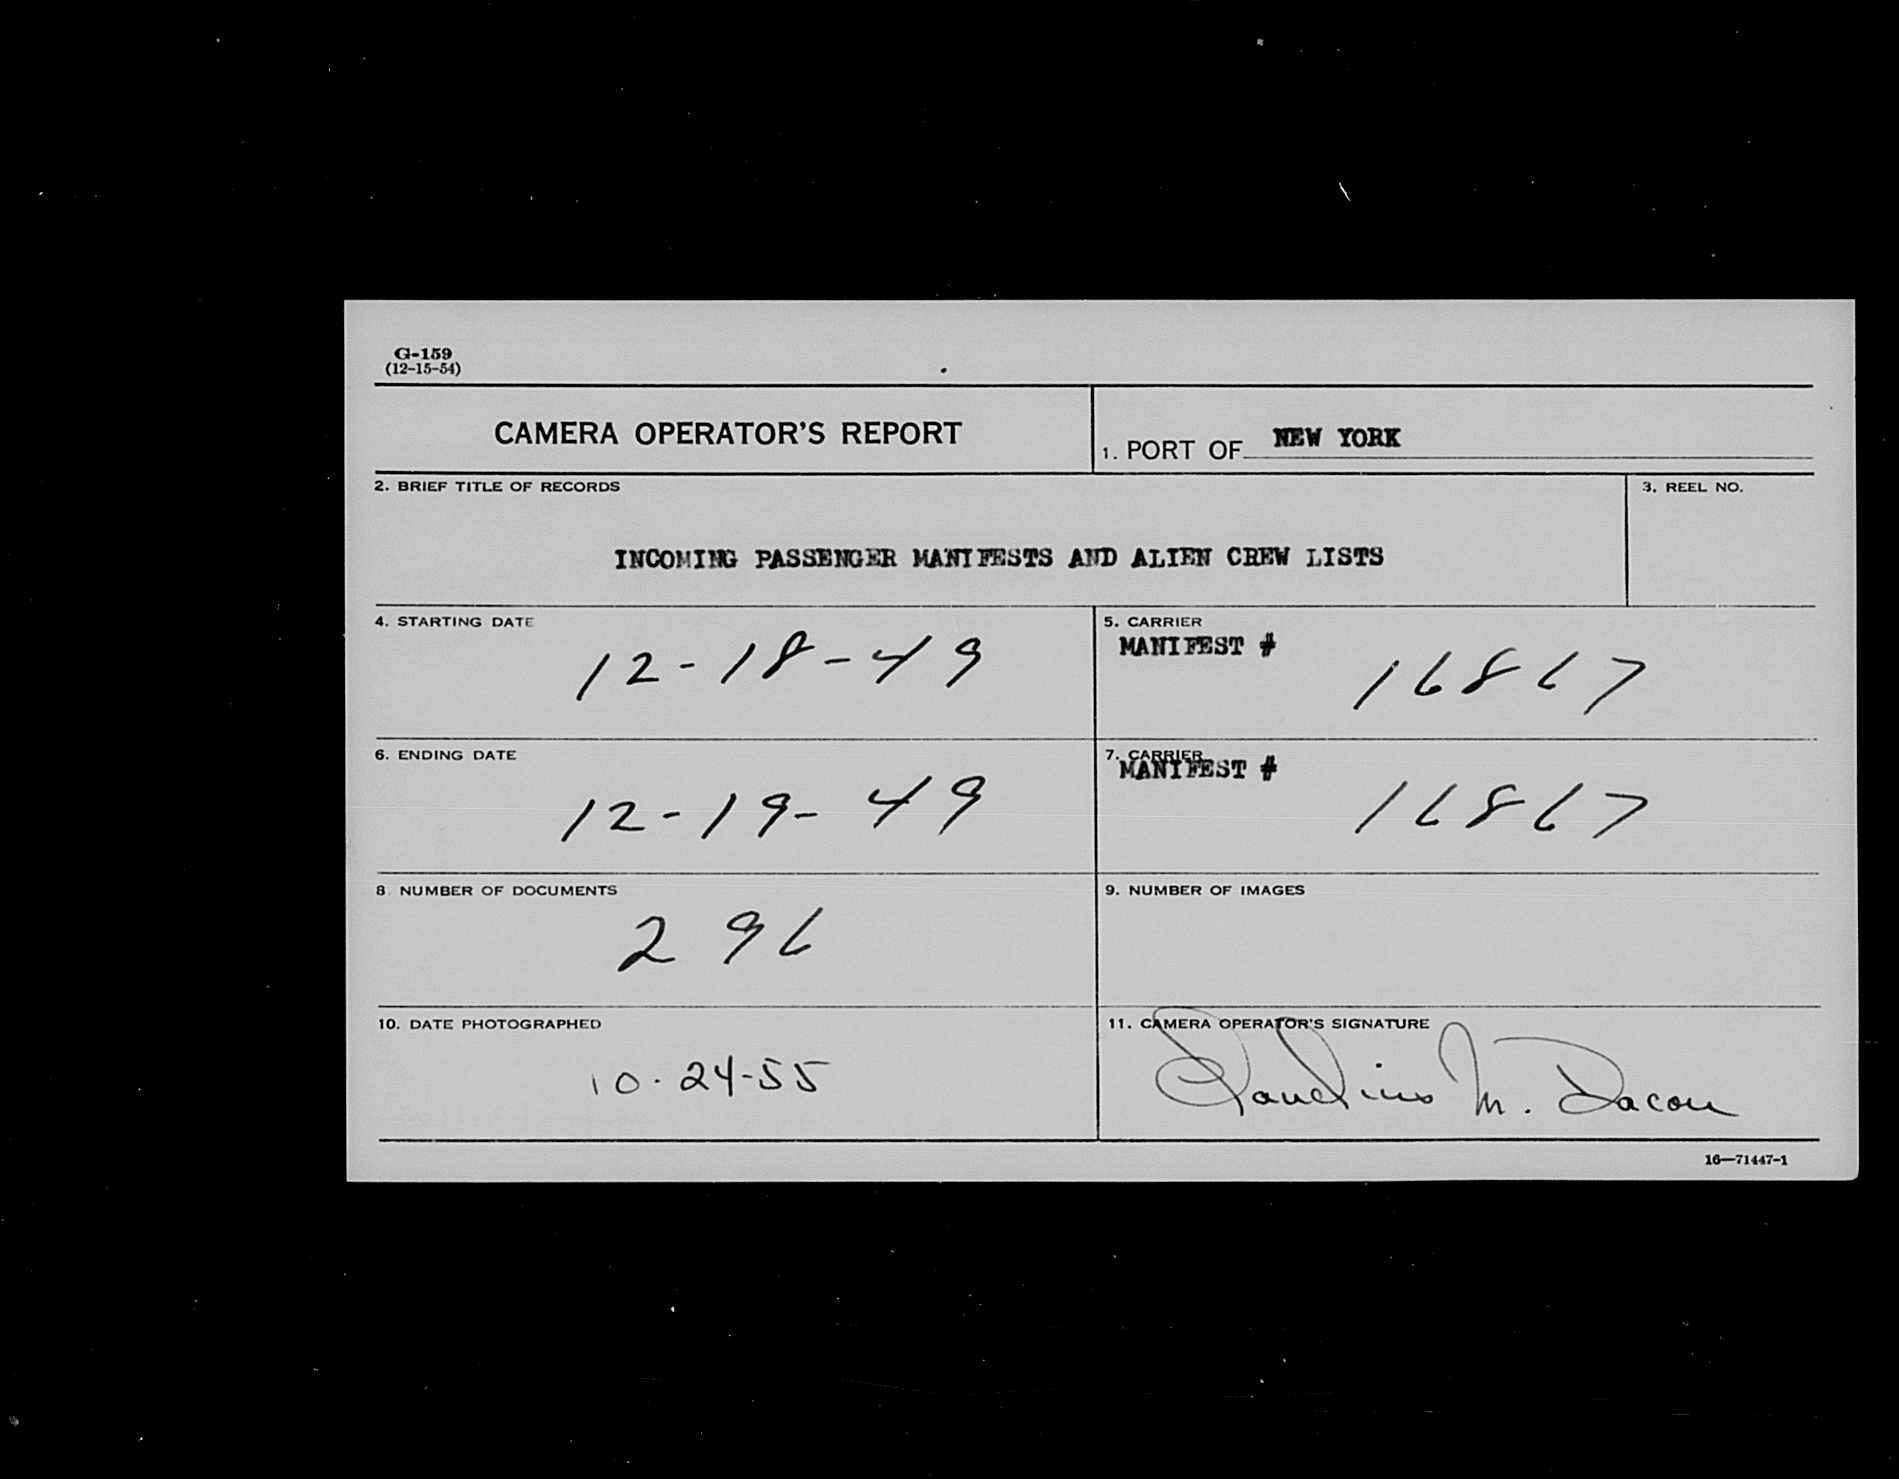 G-159
(12-15-54)
CAMERA OPERATOR'S REPORT
1. PORT OF NEW YORK
2. BRIEF TITLE OF RECORDS
3. REEL NO.
INCOMING PASSENGER MANIFESTS AND ALIEN CREW LISTS
4. STARTING DATE
12-18-49
5. CARRIER
MANIFEST #
16867
6. ENDING DATE
12-19-49
7. CARRIER
MANIFEST #
16867
8. NUMBER OF DOCUMENTS
296
9. NUMBER OF IMAGES
10. DATE PHOTOGRAPHED
10-24-55
11. CAMERA OPERATOR'S SIGNATURE
Claudius M. Dacon
16—71447-1